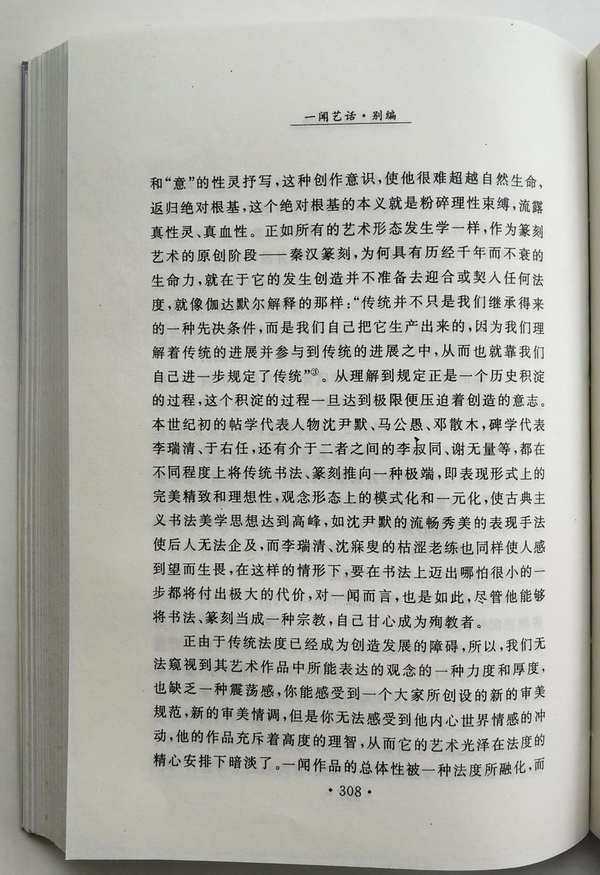 一闻艺话·别编
和“意”的性灵抒写，这种创作意识，使他很难超越自然生命，
返归绝对根基，这个绝对根基的本义就是粉碎理性束缚，流露
真性灵、真血性。正如所有的艺术形态发生学一样，作为篆刻
艺术的原创阶段——秦汉篆刻，为何具有历经千年而不衰的
生命力，就在于它的发生创造并不准备去迎合或契入任何法
度，就像伽达默尔解释的那样：“传统并不只是我们继承得来
的一种先决条件，而是我们自己把它生产出来的，因为我们理
解着传统的进展并参与到传统的进展之中，从而也就靠我们
自己进一步规定了传统”③。从理解到规定正是一个历史积淀
的过程，这个积淀的过程一旦达到极限便压迫着创造的意志。
本世纪初的帖学代表人物沈尹默、马公愚、邓散木，碑学代表
李瑞清、于右任，还有介于二者之间的李叔同、谢无量等，都在
不同程度上将传统书法、篆刻推向一种极端，即表现形式上的
完美精致和理想性，观念形态上的模式化和一元化，使古典主
义书法美学思想达到高峰，如沈尹默的流畅秀美的表现手法
使后人无法企及，而李瑞清、沈寐叟的枯涩老练也同样使人感
到望而生畏，在这样的情形下，要在书法上迈出哪怕很小的一
步都将付出极大的代价，对一闻而言，也是如此，尽管他能够
将书法、篆刻当成一种宗教，自己甘心成为殉教者。
正由于传统法度已经成为创造发展的障碍，所以，我们无
法窥视到其艺术作品中所能表达的观念的一种力度和厚度，
也缺乏一种震荡感，你能感受到一个大家所创设的新的审美
规范，新的审美情调，但是你无法感受到他内心世界情感的冲
动，他的作品充斥着高度的理智，从而它的艺术光泽在法度的
精心安排下暗淡了。一闻作品的总体性被一种法度所融化，而
·308·